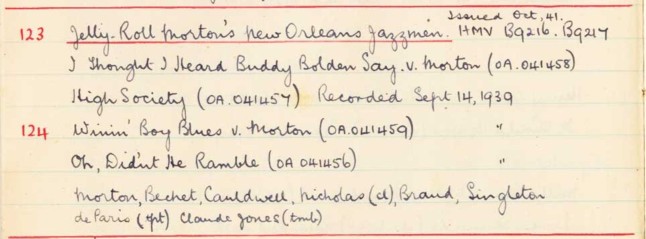 Issued Oct, 41.
123 Jelly-Roll Morton's New Orleans Jazzmen. HMV B9216. B9217
I Thought I Heard Buddy Bolden Say. v. Morton (OA.041458)
High Society (OA.041457) Recorded Sept 14, 1939
124 Winin' Boy Blues v. Morton (OA.041459) "
Oh, Didn't He Ramble (OA 041456) "
Morton, Bechet, Cauldwell, Nicholas (cl), Braud, Singleton
de Paris (tpt) Claude Jones (tmb)